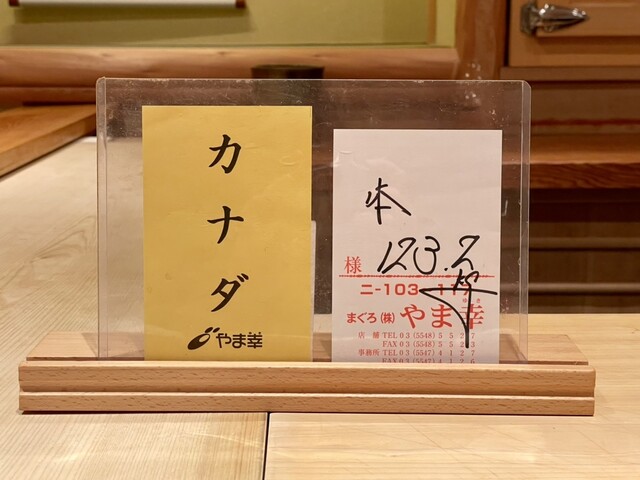 カナダ
やま幸
本
123.2
様
ニ-103
まぐろ(株)やま幸
ゆき
店舗 TEL 03 (5548) 5 5 2 7
FAX 03 (5548) 5 5 2
事務所 TEL 03 (5547) 4 1 2 7
FAX 03 (5547) 4 1 2 6